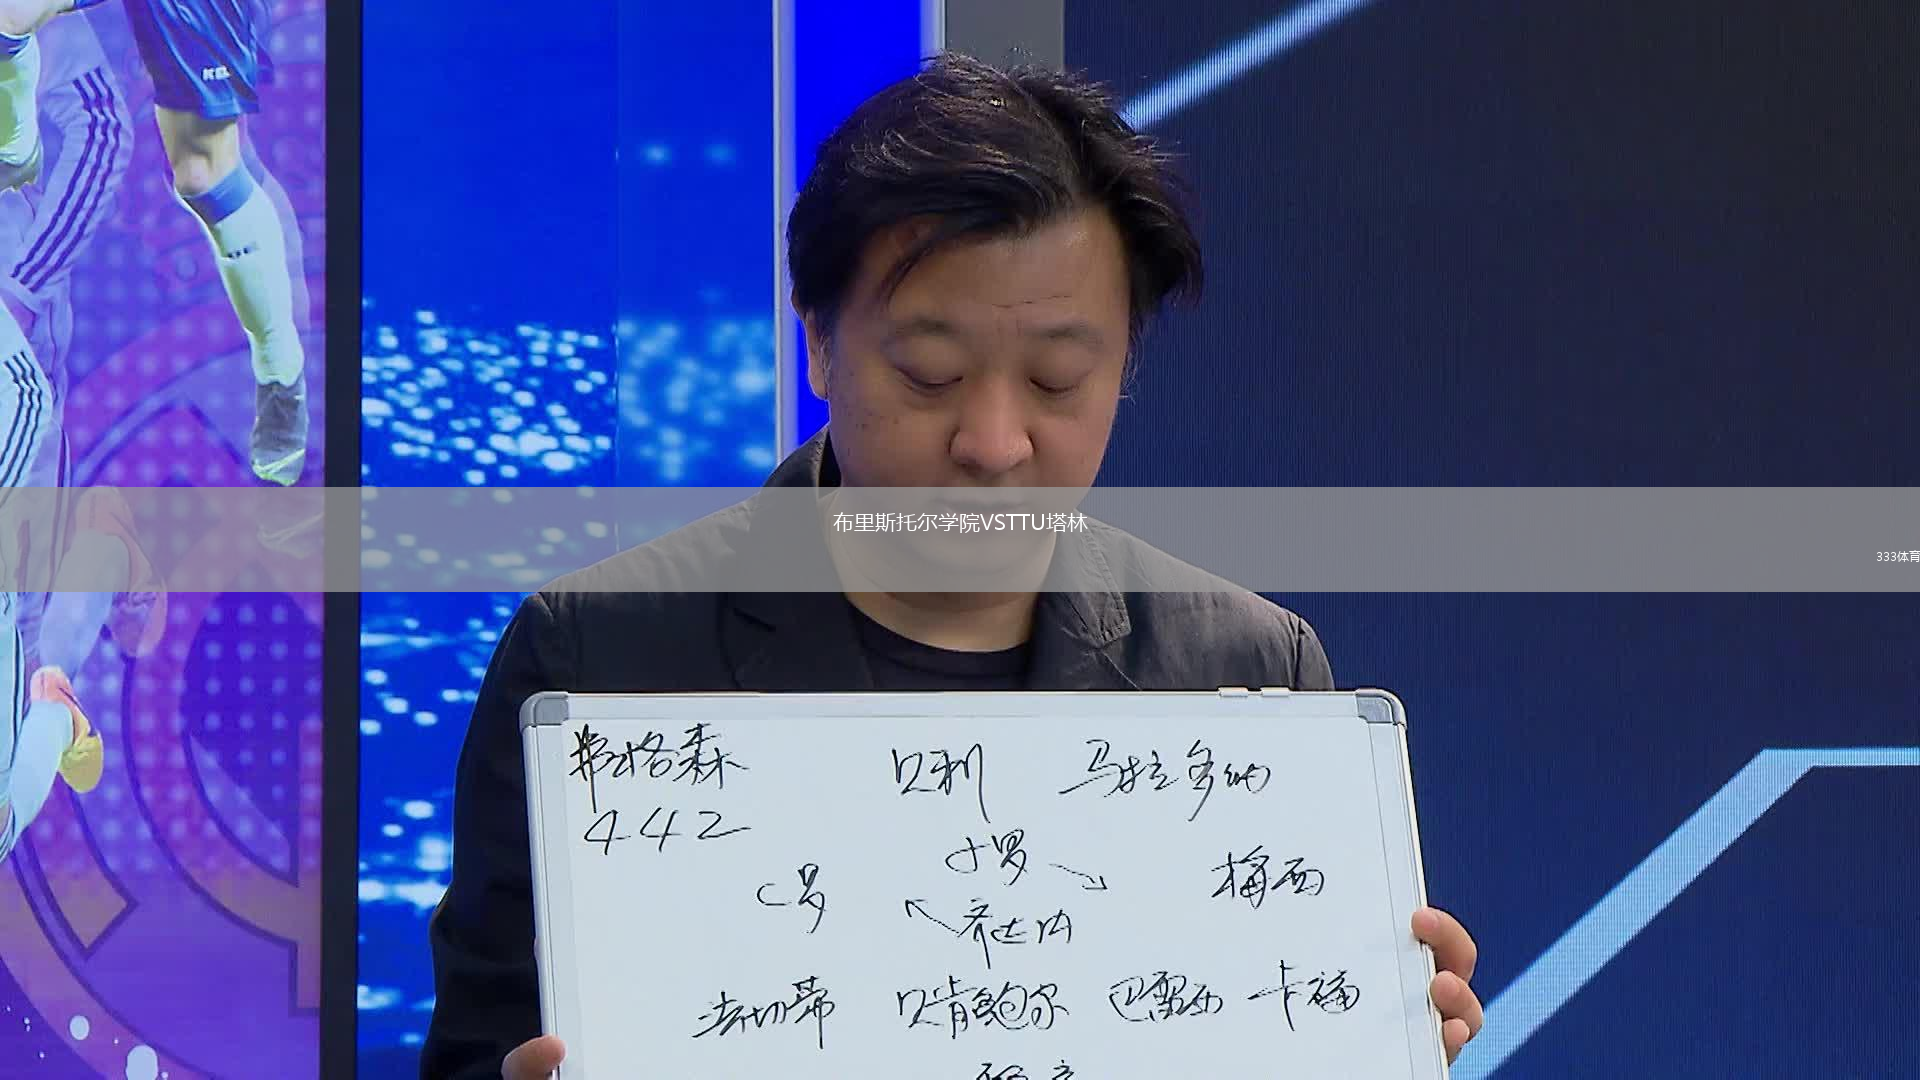 KEL
布里斯托尔学院VSTTU塔林
333体育
弗格森 贝利 马拉多纳
442
小罗
C罗 梅西
齐达内
法切蒂 贝肯鲍尔 巴雷西 卡福